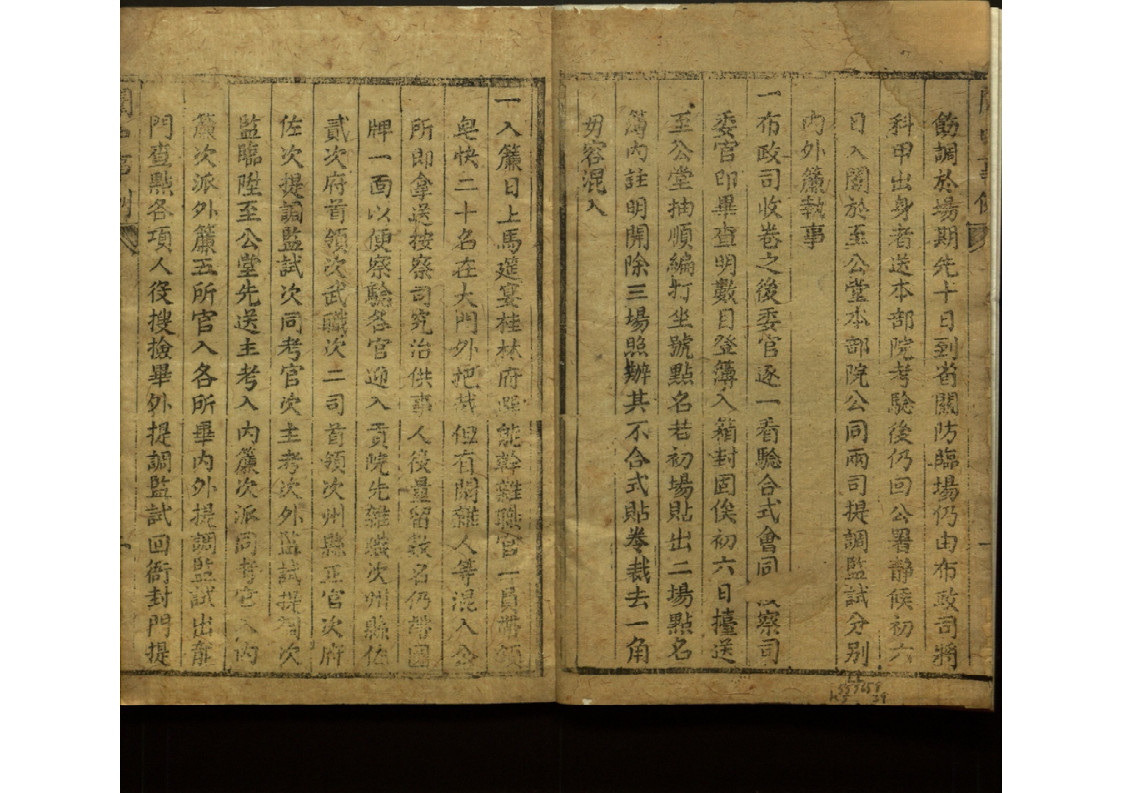 飭調於場期先十日到省關防臨場仍由布政司將
科甲出身者送本部院考驗後仍回公署静候初六
日入闈於至公堂本部院公同兩司提調監試分别
内外簾執事
一布政司收卷之後委官逐一看驗合式會同 察司
委官印畢查明數目登簿入箱封固俟初六日擡送
至公堂抽順編打坐號點名若初場貼出二場點名
簿内註明開除三場照辦其不合式貼卷裁去一角
毋容混入
一入簾日上馬筵宴桂林府 能幹雜職官一員帶領
皂快二十名在大門外把 但有閑雜人等混入公
所即拿送按察司究治供事人役量留数名仍帶
牌一面以便察驗各官迎入貢院先雜職次州縣佐
貳次府首領次武職次二司首領次州縣正官次府
佐次提調監試次同考官次主考次外监試提調次
監臨陞至公堂先送主考入内簾次派同考官入内
簾次派外簾五所官入各所畢内外提調監試出龍
門查點各項人役搜撿畢外提調監試回衙封門提